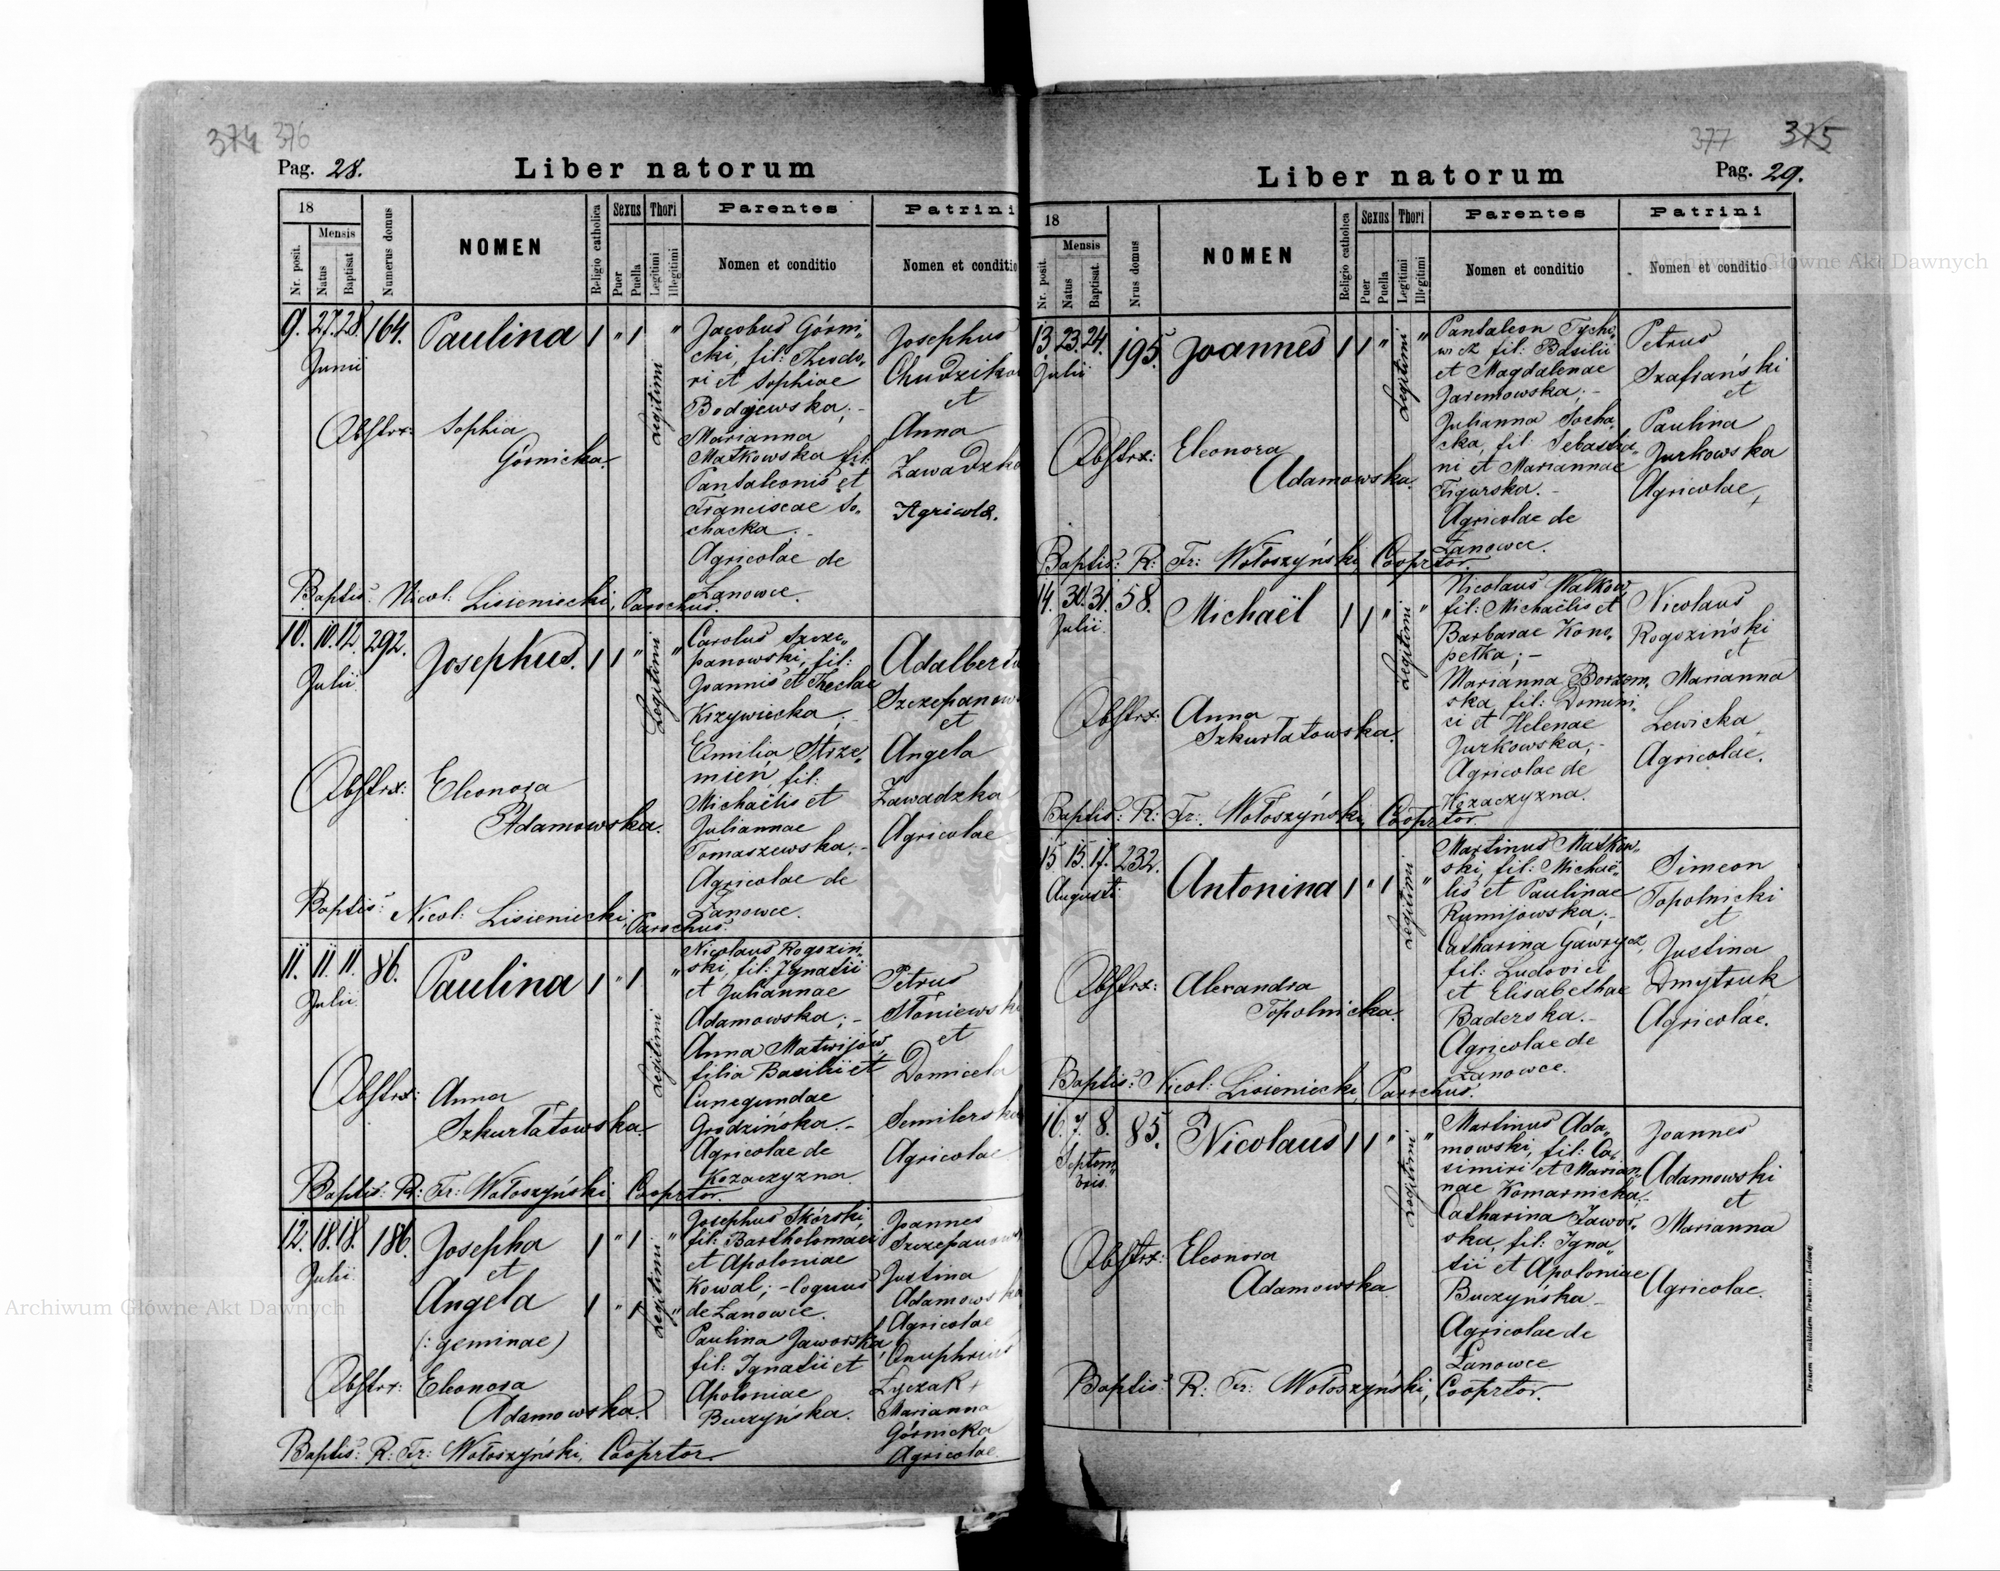 374 376
Pag. 28.
Liber natorum
18
Nr. posit.
Mensis
Natus
Baptisat
Numerus domus
NOMEN
Religio catholica
Sexus
Puer
Puella
Thori
Legitimi
Illegitimi
Parentes
Nomen et conditio
Patrini
Nomen et conditio
9. 27. 28. 164. Paulina 1 " 1 "
Junii
Legitimi
Obstrx: Sophia
Górnicka.
Jacobus Górni-
cki, fil: Theodo-
ri et Sophiae
Marianna
Matkowska fil:
Pantaleonis et
Franciscae So-
chacka; -
Agricolae de
Łanowce.
Josephus
et
Anna
Agricolae.
Baptis: Nicol: Lisieniecki, Parochus.
10. 10. 12. 292. Josephus. 1 1 " "
Julii
Legitimi
Obstrx: Eleonora
Adamowska.
Carolus Szcze-
panowski, fil:
Joannis et Theclae
Krzywiecka; -
Emilia Strze-
mień, fil:
Michaëlis et
Juliannae
Tomaszewska; -
Agricolae de
Łanowce.
et
Angela
Zawadzka
Agricolae
Baptis: Nicol: Lisieniecki, Parochus.
11. 11. 11. 86. Paulina 1 " 1 "
Julii
Legitimi
Obstrx: Anna
Szkurłatowska.
Nicolaus Rogoziń-
ski, fil: Ignatii
et Juliannae
Adamowska; -
Anna Matwijów
filia Basilii et
Cunegundae
Grodzińska. -
Agricolae de
Kozaczyzna.
Petrus
et
Domicela
Agricolae
Baptis: R: Fr: Wołoszyński Cooprtor.
12. 18. 18. 186. Josepha 1 " 1
Julii
et
Angela 1 " 1 "
(: geminae)
Legitimi
Obstrx: Eleonora
Adamowska.
Josephus Skórski,
fil: Bartholomaei
et Apoloniae
Kowal; - Coquus
de Łanowce.
Paulina Jaworska,
fil: Ignatii et
Apoloniae
Buczyńska.
Joannes
Justina
Agricolae
Łyczak +
Marianna
Górnicka
Agricolae.
Baptis: R: Fr: Wołoszyński, Cooprtor.
377 375
Liber natorum
Pag. 29.
18
Nr. posit.
Mensis
Natus
Baptisat.
Nrus domus
NOMEN
Religio catholica
Sexus
Puer
Puella
Thori
Legitimi
Illegitimi
Parentes
Nomen et conditio
Patrini
Nomen et conditio
13. 23. 24. 195. Joannes 1 1 " "
Julii
Legitimi
Obstrx: Eleonora
Adamowska.
Pantaleon Tycho-
wicz fil: Basilii
et Magdalenae
Jaremowska; -
Julianna Socha-
cka, fil: Sebastia-
ni et Mariannae
Figurska. -
Agricolae de
Łanowce.
Petrus
Szafrański
et
Paulina
Jurkowska
Agricolae,
Baptis: R: Fr: Wołoszyński, Cooprtor.
14. 30. 31. 58. Michaël 1 1 " "
Julii
Legitimi
Obstrx: Anna
Szkurłatowska.
fil: Michaëlis et
Barbarae Kono-
petka; -
ska, fil: Domini-
ci et Helenae
Jurkowska; -
Agricolae de
Kozaczyzna.
Nicolaus
Rogoziński
et
Marianna
Lewicka,
Agricolae.
Baptis: R: Fr: Wołoszyński, Cooprtor.
15 15. 17. 232. Antonina 1 " 1 "
Augusti
Legitimi
Obstrx: Alexandra
Topolnicka.
Martinus Matkow-
ski, fil: Michaë-
lis et Paulinae
Rumijowska; -
fil: Ludovici
et Elisabethae
Baderska. -
Agricolae de
Łanowce.
Simeon
Topolnicki
et
Justina
Dmytruk
Agricolae.
Baptis: Nicol: Lisieniecki, Parochus.
16. 7. 8. 85. Nicolaus 1 1 " "
Septem-
bris.
Legitimi
Obstrx: Eleonora
Adamowska
Martinus Ada-
mowski, fil: Ca-
simiri et Marian-
nae Komarnicka, -
Catharina Jawor-
ska, fil: Igna-
tii et Apoloniae
Buczyńska -
Agricolae de
Łanowce
Joannes
Adamowski
et
Marianna
Agricolae.
Baptis: R: Fr: Wołoszyński, Cooprtor.
Archiwum Główne Akt Dawnych
Archiwum Główne Akt Dawnych